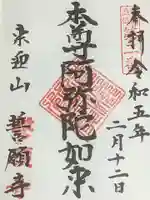 奉拝
令和五年
二月十二日
本尊阿弥陀如来
来迎山
誓願寺